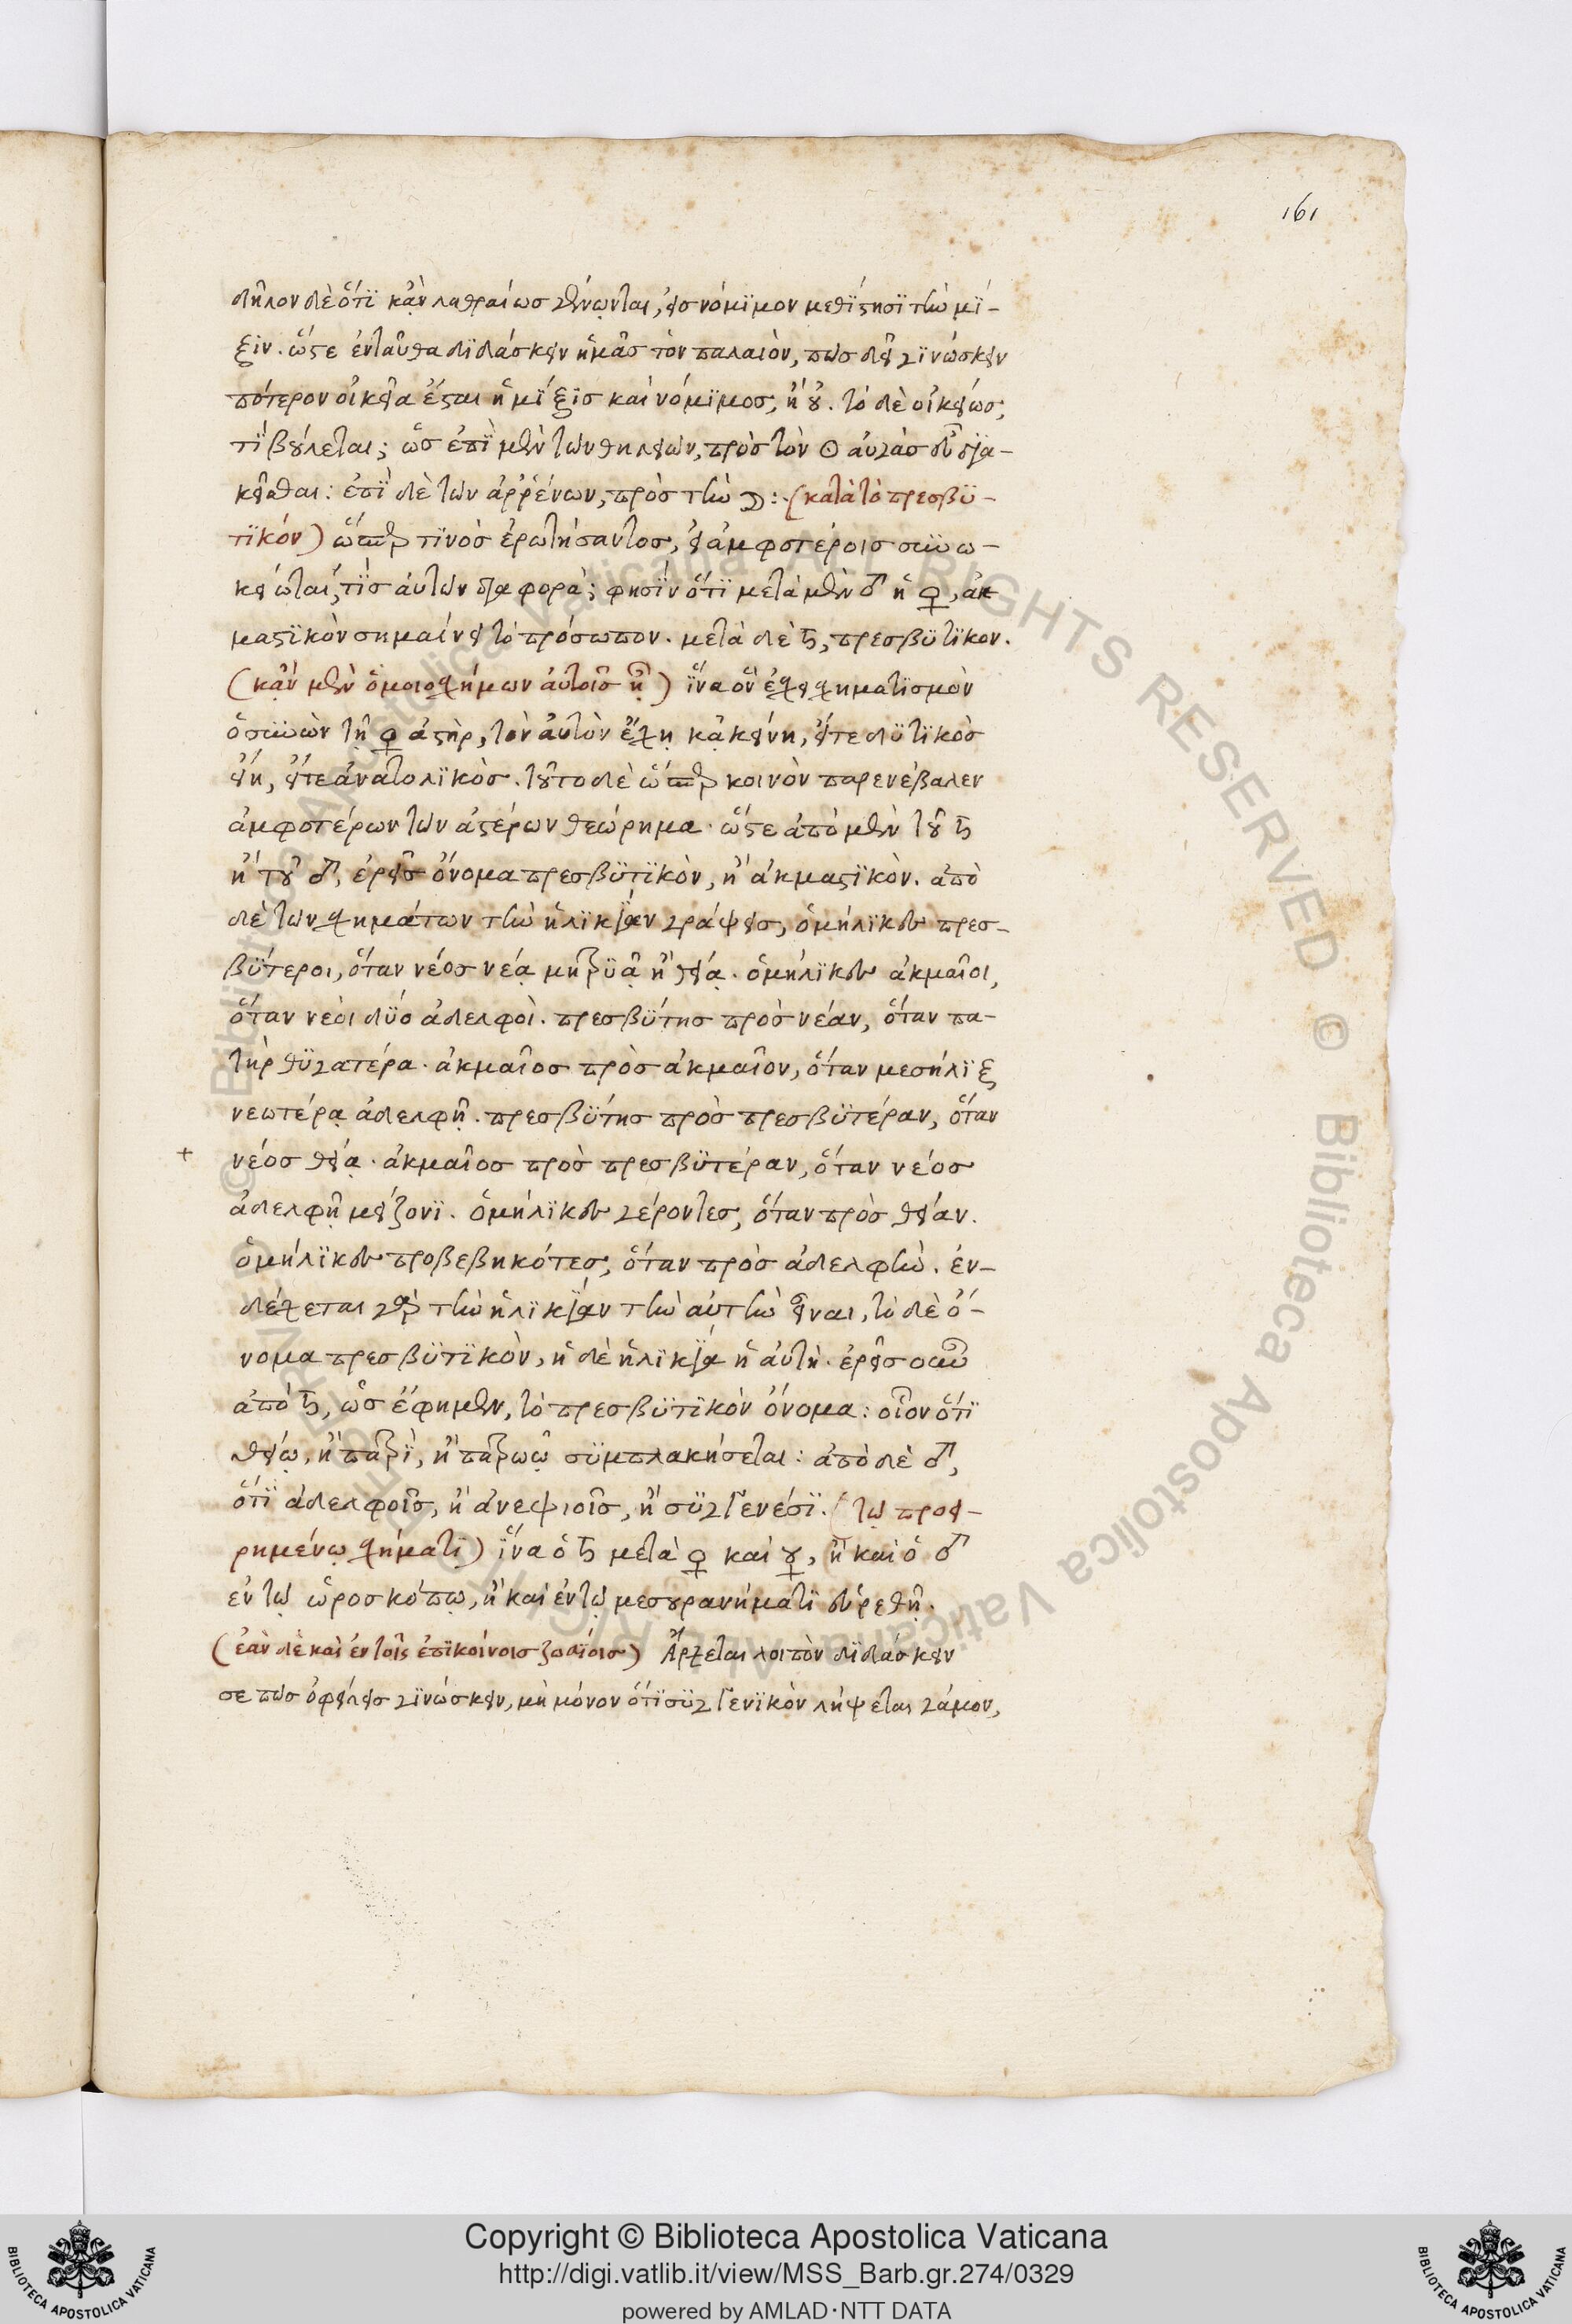 161
δῆλον δὲ ὅτι κᾂν λαθραίως γένωνται, εἰς νόμιμον μεθίστησι τὴν μί-
ξιν. ὥστε ἐνταῦθα διδάσκειν ἡμᾶς τὸν παλαιὸν, πῶς δεῖ γινώσκειν
πότερον οἰκεῖα ἔσται ἡ μίξις καὶ νόμιμος, ἢ οὔ. τὸ δὲ οἰκείως,
τί βούλεται; ὡς ἐπὶ μὲν τῶν θηλειῶν, πρὸς τὸν ☉ αὐτὰς συνδια-
κεῖσθαι: ἐπὶ δὲ τῶν ἀῤῥένων, πρὸς τὴν ☽: (κατὰ τὸ πρεσβυ-
τικόν) ὥσπερ τινὸς ἐρωτήσαντος, εἰ ἀμφοτέροις συνω-
κείωται, τίς αὐτῶν διαφορά; φησὶν ὅτι μετὰ μὲν ♂ ἡ ♀, ἀκ
μαστικὸν σημαίνει τὸ πρόσωπον. μετὰ δὲ ♄, πρεσβυτικον.
(κᾂν μὲν ὁμοιοσχήμων αὐτοῖς ᾖ) ἵνα ὃν ἔχει σχηματισμὸν
ὁ συνὼν τῇ ♀ ἀστὴρ, τὸν αὐτὸν ἔχῃ κᾀκείνη, εἴτε δυτικὸς
εἴη, εἴτε ἀνατολικὸς. τοῦτο δὲ ὥσπερ κοινὸν παρενέβαλεν
ἀμφοτέρων τῶν ἀστέρων θεώρημα. ὥστε ἀπὸ μὲν τοῦ ♄
ἢ τοῦ ♂, ἐρεῖς ὄνομα πρεσβυτικὸν, ἢ ἀκμαστικὸν. ἀπὸ
δὲ τῶν σχημάτων τὴν ἡλικίαν γράψεις, ὁμήλικες πρεσ-
βύτεροι, ὅταν νέος νέᾳ μητρυᾷ ἢ θείᾳ. ὁμήλικες ἀκμαῖοι,
ὅταν νέοι δύο ἀδελφοὶ. πρεσβύτης πρὸς νέαν, ὅταν πα-
τὴρ θυγατέρα. ἀκμαῖος πρὸς ἀκμαῖον, ὅταν μεσήλιξ
νεωτέρᾳ ἀδελφῇ. πρεσβύτης πρὸς πρεσβυτέραν, ὅταν
+ νέος θείᾳ. ἀκμαῖος πρὸς πρεσβυτέραν, ὅταν νέος
ἀδελφῇ μείζονι. ὁμήλικες γέροντες, ὅταν πρὸς θείαν.
ὁμήλικες προβεβηκότες, ὅταν πρὸς ἀδελφὴν. ἐν-
δέχεται γὰρ τὴν ἡλικίαν τὴν αὐτὴν εἶναι, τὸ δὲ ὄ-
νομα πρεσβυτικὸν, ἡ δὲ ἡλικία ἡ αὐτὴ. ἐρεῖς οὖν
ἀπὸ ♄, ὡς ἔφημεν, τὸ πρεσβυτικὸν ὄνομα: οἷον ὅτι
θείῳ, ἢ πατρὶ, ἢ πατρωῷ συμπλακήσεται: ἀπὸ δὲ ♂,
ὅτι ἀδελφοῖς, ἢ ἀνεψιοῖς, ἢ συγγενέσι. (τῷ προει-
ρημένῳ σχήματι) ἵνα ὁ ♄ μετὰ ♀ καὶ ☿, ἢ καὶ ὁ ♂
ἐν τῷ ὡροσκόπῳ, ἢ καὶ ἐν τῷ μεσουρανήματι εὑρεθῇ.
(ἐὰν δὲ καὶ ἐν τοῖς ἐπικοίνοις ζῳδίοις) Ἄρχεται λοιπὸν διδάσκειν
σε πῶς ὀφείλεις γινώσκειν, μὴ μόνον ὅτι συγγενικὸν λήψεται γάμον,
Copyright © Biblioteca Apostolica Vaticana
http://digi.vatlib.it/view/MSS_Barb.gr.274/0329
powered by AMLAD·NTT DATA